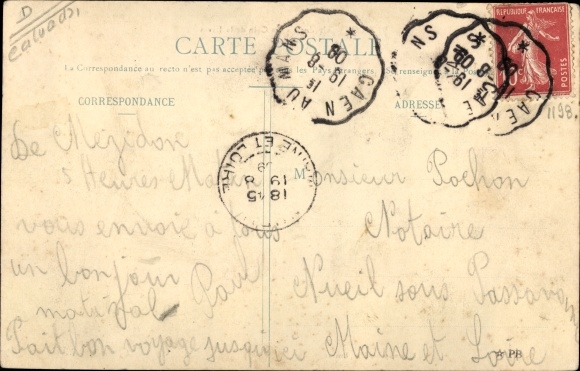 D
Calvados
CARTE POSTALE
La Correspondance au recto n'est pas acceptée par tous les Pays étrangers. Se renseigner à la Poste
CORRESPONDANCE
De Mézidon
5 Heures Matin
vous envoie à tous
un bonjour
matinal Paul
Fait bon voyage jusqu'ici
Monsieur Pochon
Notaire
Nueil sous Passavant
Maine et Loire
CAEN AU MANS
19 - 8
08
MAINE ET LOIRE
18 45
19 8
REPUBLIQUE FRANÇAISE
1198.
A PB